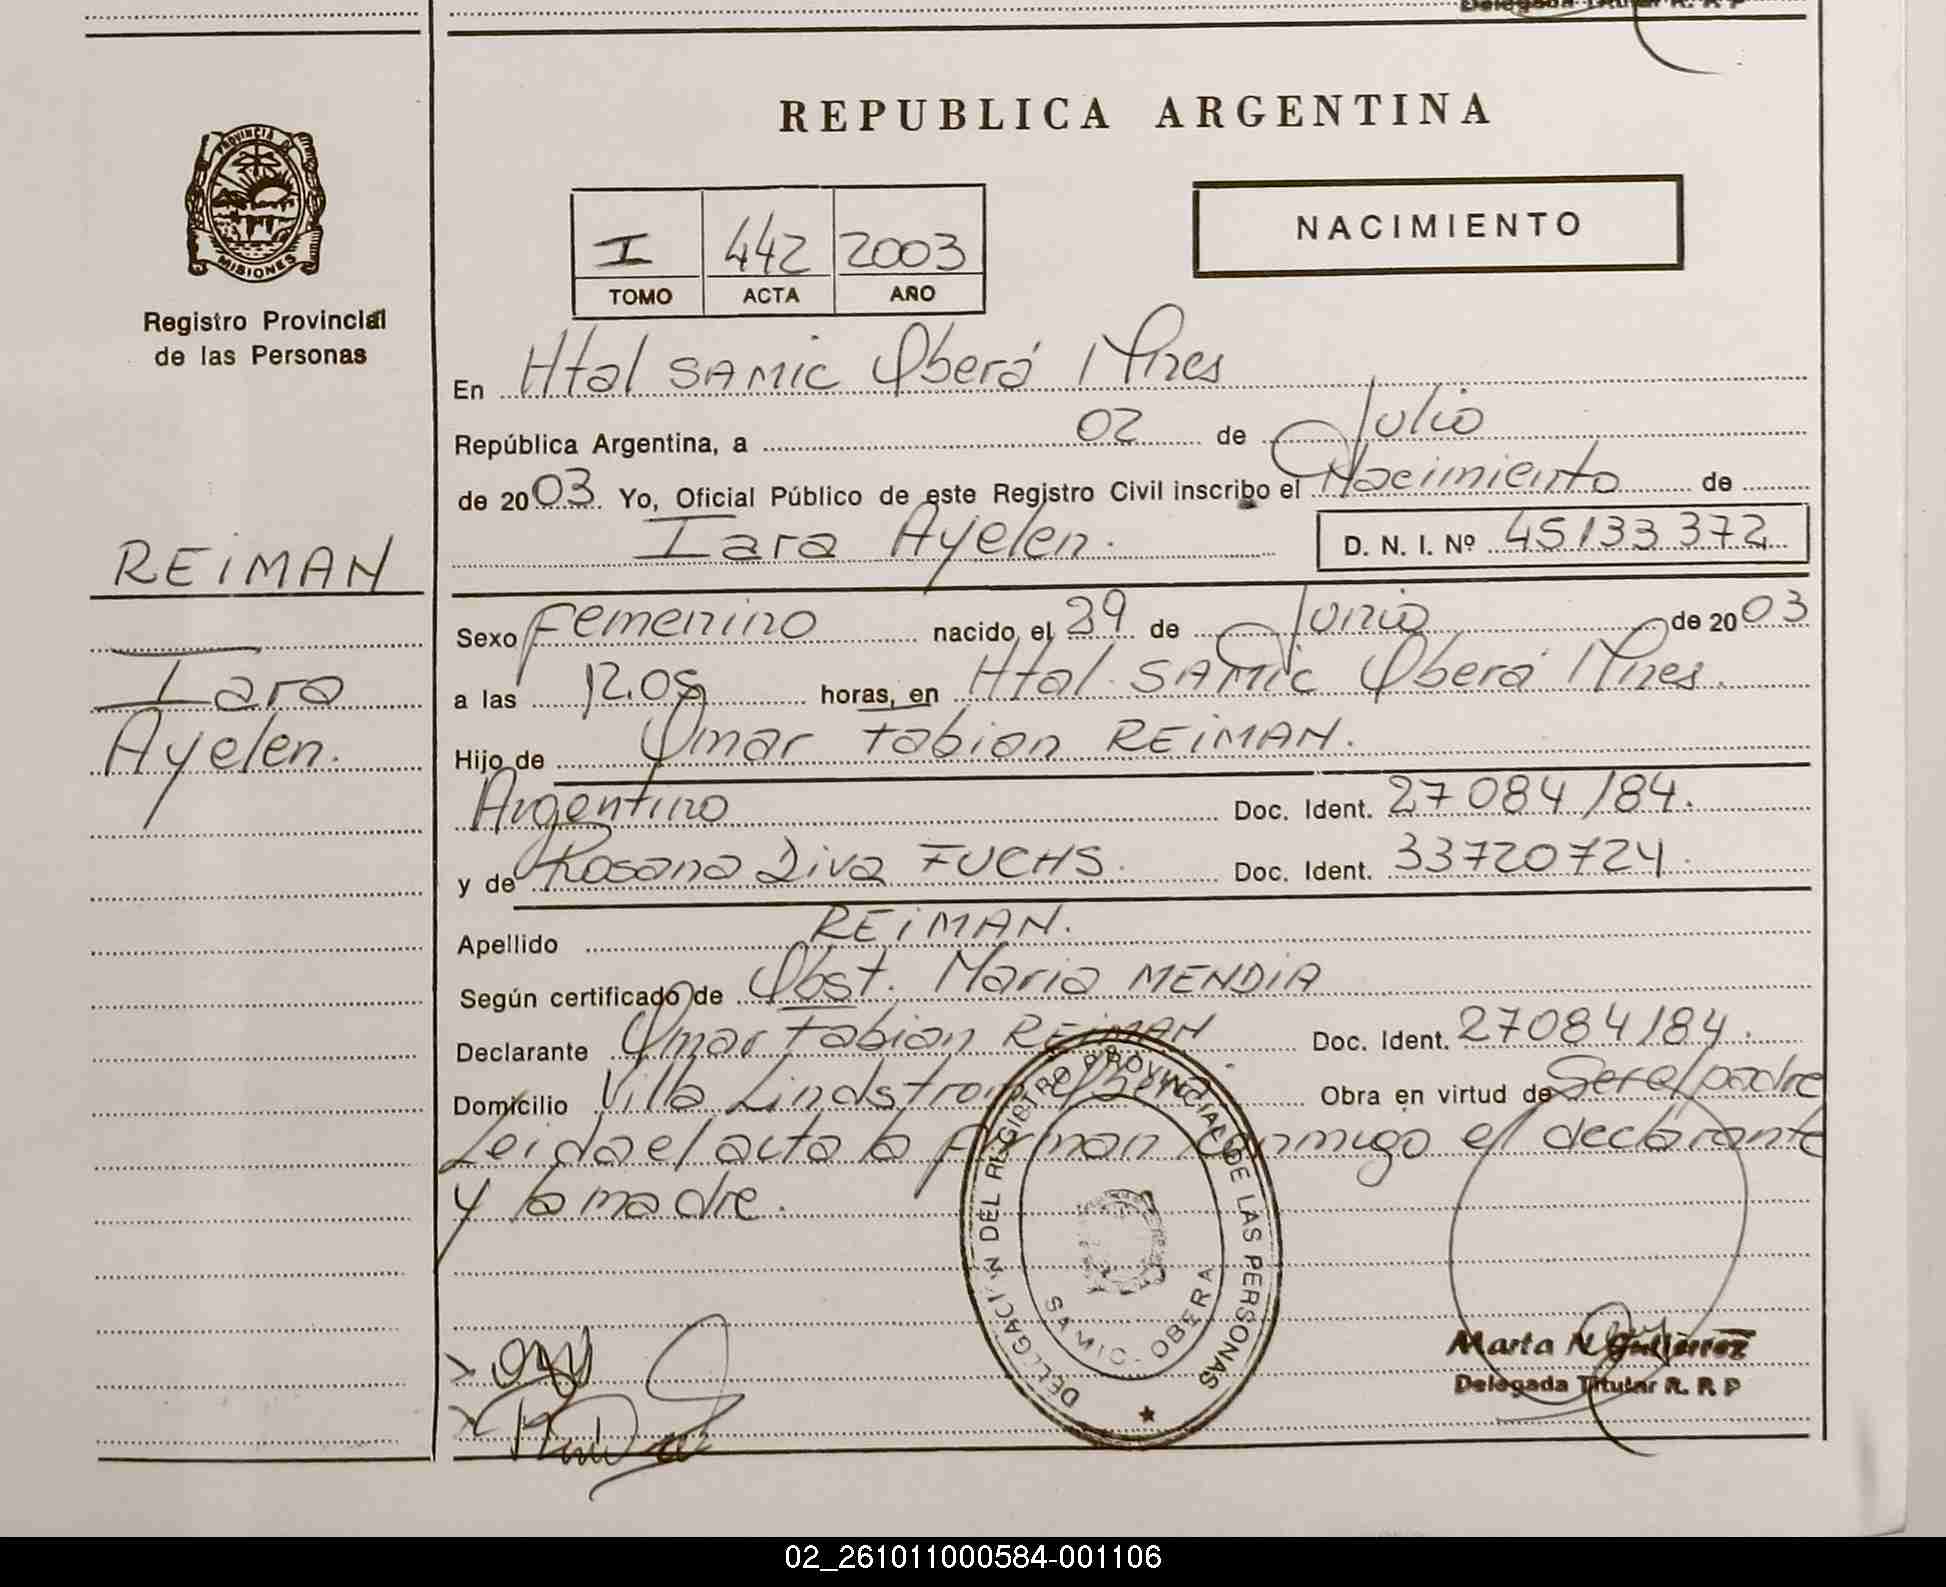 Delegada Titular R. R P
REPUBLICA ARGENTINA
PROVINCIA DE
MISIONES
Registro Provincial
de las Personas
I 442 2003
TOMO ACTA AÑO
NACIMIENTO
En Htal SAMIC Oberá Mnes
República Argentina, a 02 de Julio
de 2003. Yo, Oficial Público de este Registro Civil inscribo el Nacimiento de
Iara Ayelen. D. N. I. Nº 45133372
REIMAN
Iara
Ayelen.
Sexo Femenino nacido el 29 de Junio de 2003
a las 12.05 horas, en Htal. SAMIC Oberá Mnes.
Hijo de Omar Fabian REIMAN.
Argentino Doc. Ident. 27084184.
y de Rosana Diva FUCHS. Doc. Ident. 33720724.
Apellido REIMAN.
Según certificado de Obst. Maria MENDIA
Declarante Omar Fabian REIMAN Doc. Ident. 27084184.
Domicilio Villa Lindstrom Oberá. Obra en virtud de Ser el padre
Leida el acta la firman conmigo el declarante
y la madre.
DELEGACION DEL REGISTRO PROVINCIAL DE LAS PERSONAS
SAMIC - OBERA
Marta N. Gutierrez
Delegada Titular R. R P
02_261011000584-001106